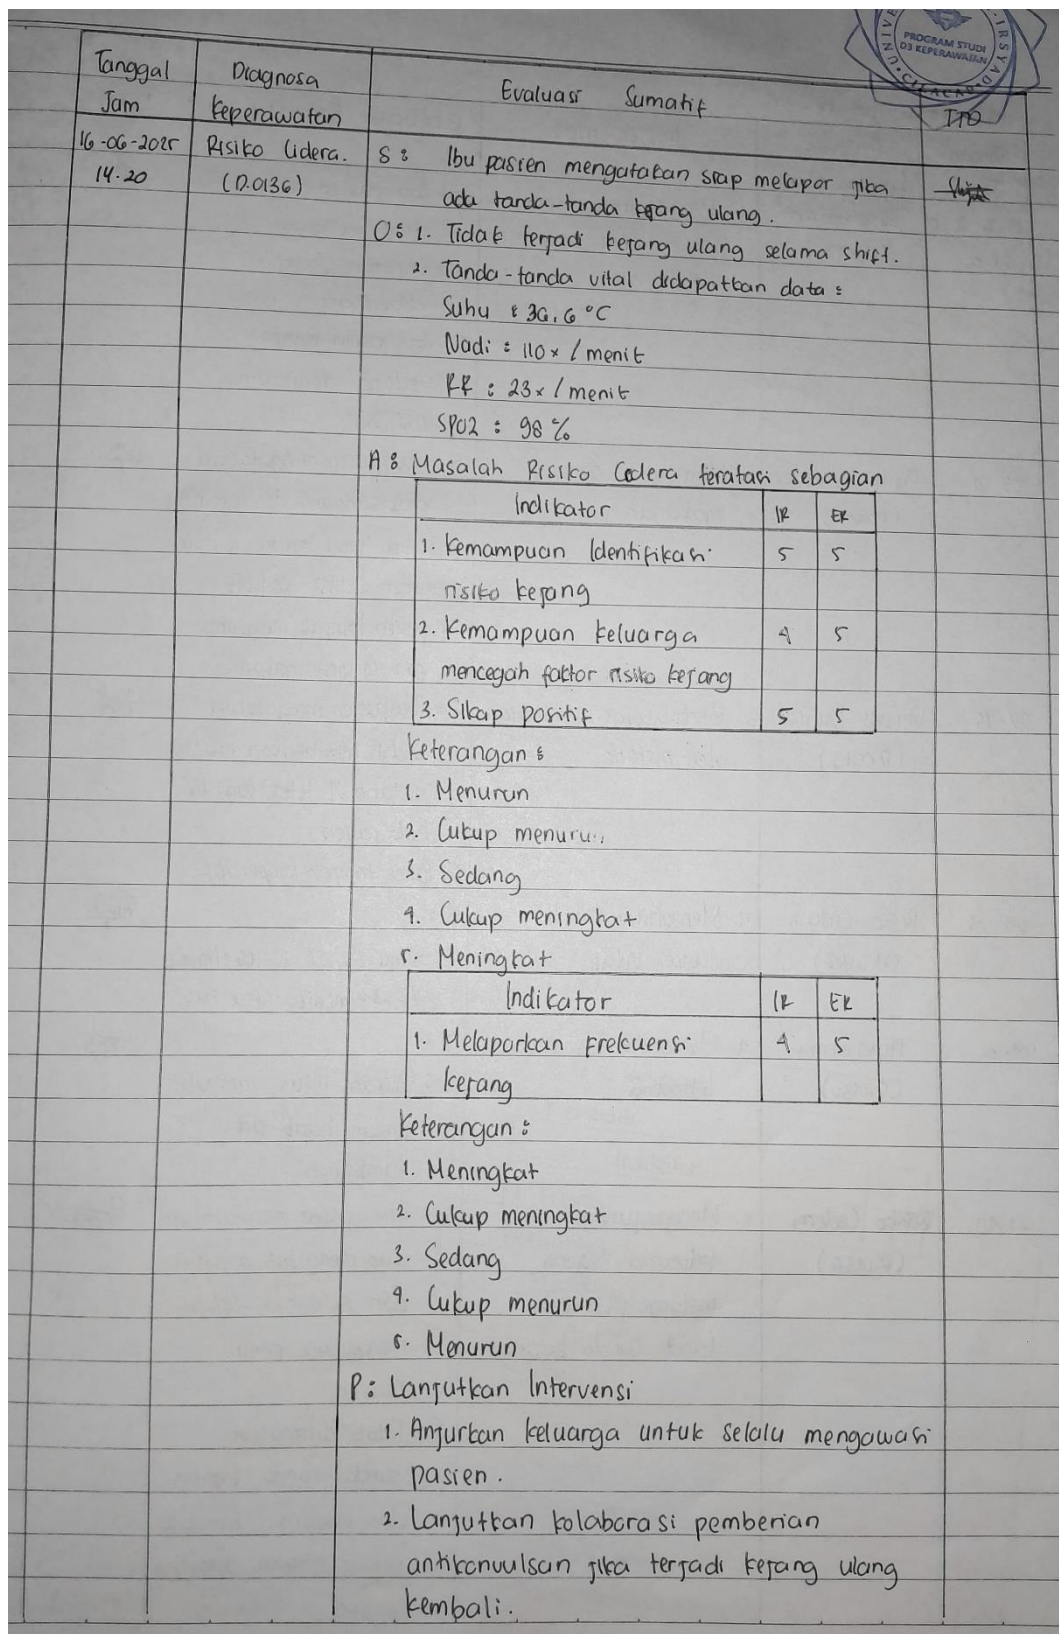 PROGRAM STUDI
D3 KEPERAWATAN
Tanggal
Jam
Diagnosa
Keperawatan
Evaluasi Sumatif
TTD
16-06-2025
14.20
Risiko Cidera.
(D.0136)
S : Ibu pasien mengatakan siap melapor jika
ada tanda-tanda kejang ulang.
O : 1. Tidak terjadi kejang ulang selama shift.
2. Tanda-tanda vital didapatkan data :
Suhu : 36,6 °C
Nadi : 110 x / menit
RR : 23 x / menit
SPO2 : 98 %
A : Masalah Risiko Cedera teratasi sebagian
Indikator IR ER
1. Kemampuan Identifikasi 5 5
risiko kejang
2. Kemampuan keluarga 4 5
mencegah faktor risiko kejang
3. Sikap positif 5 5
Keterangan :
1. Menurun
2. Cukup menurun
3. Sedang
4. Cukup meningkat
5. Meningkat
Indikator IR ER
1. Melaporkan Frekuensi 4 5
kejang
Keterangan :
1. Meningkat
2. Cukup meningkat
3. Sedang
4. Cukup menurun
5. Menurun
P : Lanjutkan Intervensi
1. Anjurkan keluarga untuk selalu mengawasi
pasien.
2. Lanjutkan kolaborasi pemberian
antikonvulsan jika terjadi kejang ulang
kembali.